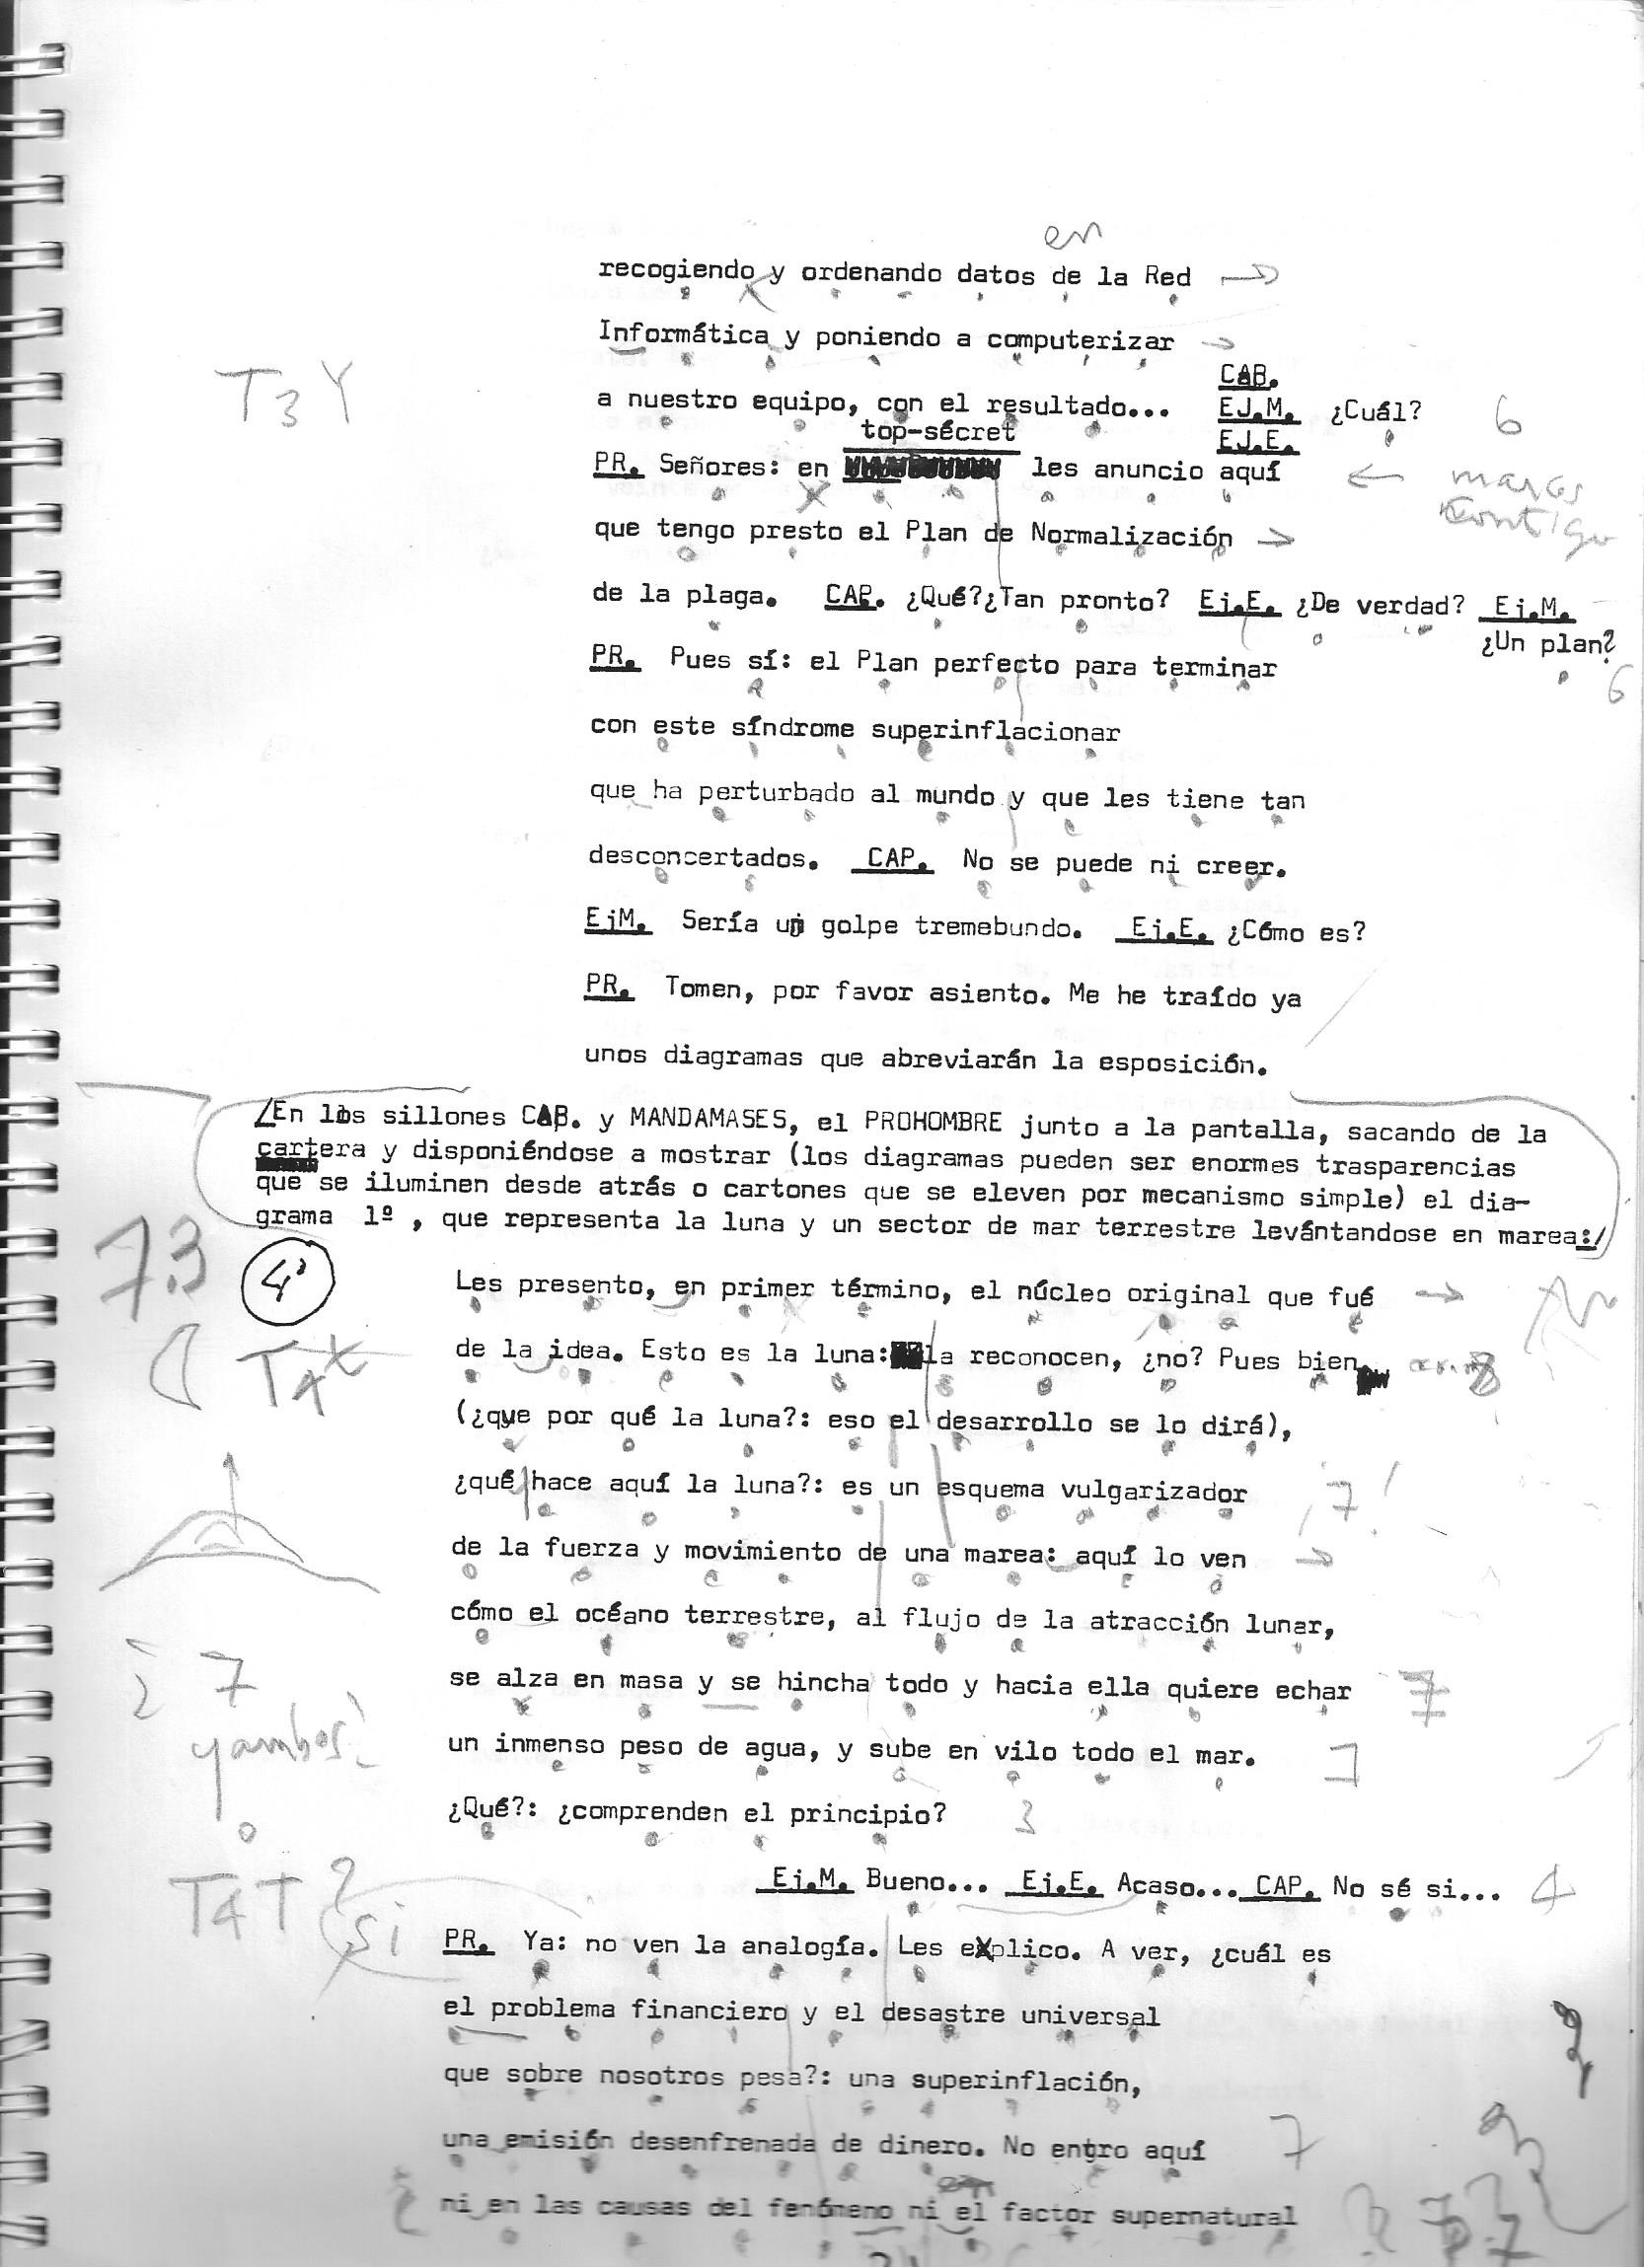 en
recogiendo y ordenando datos de la Red →
Informática y poniendo a computerizar →
T3Y
CAB.
a nuestro equipo, con el resultado... EJ.M. ¿Cuál? 6
top-sécret EJ.E.
PR. Señores: en les anuncio aquí ←
que tengo presto el Plan de Normalización →
de la plaga. CAP. ¿Qué?¿Tan pronto? Ej.E. ¿De verdad? Ej.M.
¿Un plan?
PR. Pues sí: el Plan perfecto para terminar 6
con este síndrome superinflacionar
que ha perturbado al mundo y que les tiene tan
desconcertados. CAP. No se puede ni creer.
EjM. Sería un golpe tremebundo. Ej.E. ¿Cómo es?
PR. Tomen, por favor asiento. Me he traído ya
unos diagramas que abreviarán la esposición.
/En los sillones CAB. y MANDAMASES, el PROHOMBRE junto a la pantalla, sacando de la
cartera y disponiéndose a mostrar (los diagramas pueden ser enormes trasparencias
que se iluminen desde atrás o cartones que se eleven por mecanismo simple) el dia-
grama 1º , que representa la luna y un sector de mar terrestre levántandose en marea:/
7.3
4º
Les presento, en primer término, el núcleo original que fué →
T4t
de la idea. Esto es la luna: la reconocen, ¿no? Pues bien, 8
(¿que por qué la luna?: eso el desarrollo se lo dirá),
¿qué hace aquí la luna?: es un esquema vulgarizador 7!
de la fuerza y movimiento de una marea: aquí lo ven →
cómo el océano terrestre, al flujo de la atracción lunar,
se alza en masa y se hincha todo y hacia ella quiere echar 7
¿7 yambos?
un inmenso peso de agua, y sube en vilo todo el mar. 7
¿Qué?: ¿comprenden el principio? 3
o
T4T?
Ej.M. Bueno... Ej.E. Acaso... CAP. No sé si... 4
si
PR. Ya: no ven la analogía. Les explico. A ver, ¿cuál es
el problema financiero y el desastre universal
que sobre nosotros pesa?: una superinflación,
una emisión desenfrenada de dinero. No entro aquí 7
ni en las causas del fenómeno ni el factor supernatural